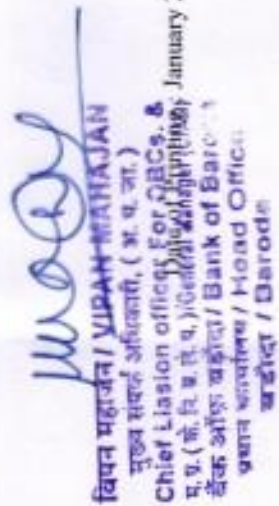 विपन महाजन / VIPAN MAHAJAN
मुख्य संपर्क अधिकारी, ( अ. प. जा. )
Chief Liasion officer For OBCs. &
January
बैंक ऑफ़ बड़ौदा / Bank of Baroda
प्रधान कार्यालय / Head Office
बड़ौदा / Baroda